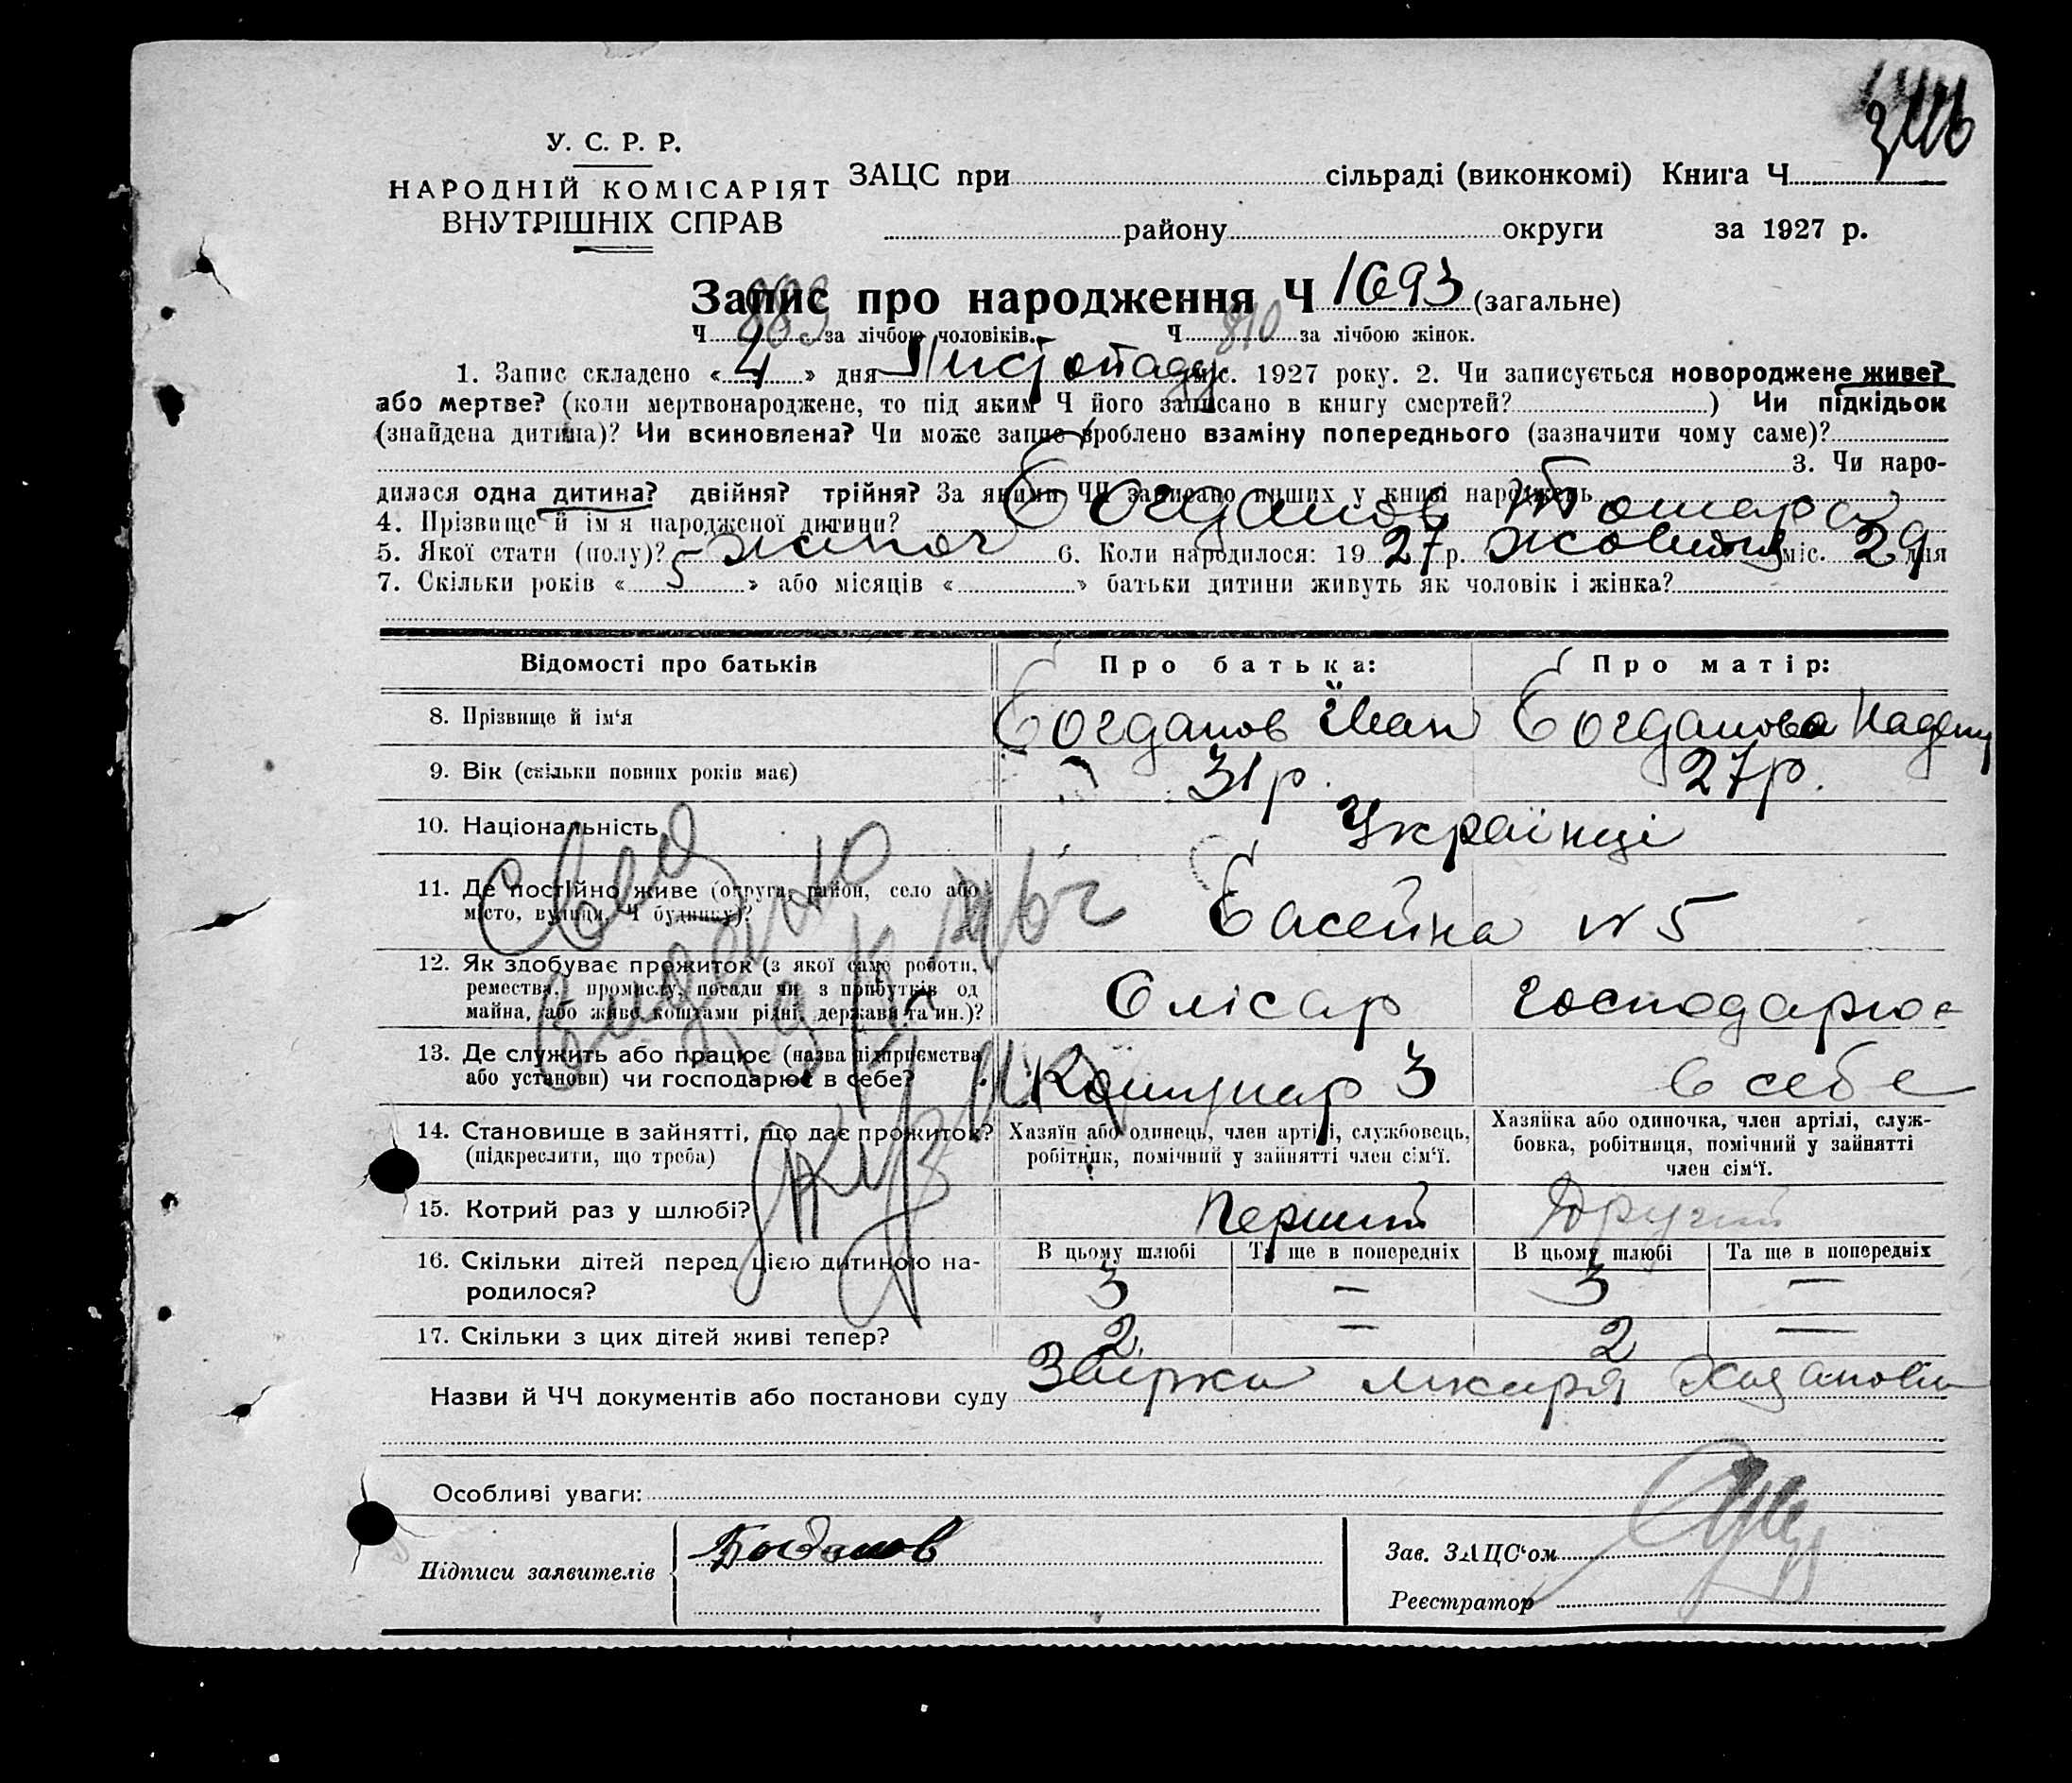 У. С. Р. Р.
НАРОДНІЙ КОМІСАРІЯТ
ВНУТРІШНІХ СПРАВ
ЗАЦС при сільраді (виконкомі) Книга Ч
району округи за 1927 р.
Запис про народження Ч 1693 (загальне)
Ч за лічбою чоловіків. Ч 810 за лічбою жінок.
1. Запис складено « 4 » дня Листопаду міс. 1927 року. 2. Чи записується новороджене живе?
або мертве? (коли мертвонароджене, то під яким Ч його записано в книгу смертей? ) Чи підкідьок
(знайдена дитина)? Чи всиновлена? Чи може запис зроблено взаміну попереднього (зазначити чому саме)?
3. Чи наро-
дилася одна дитина? двійня? трійня? За якими ЧЧ записано инших у книзі народжень
4. Прізвище й ім'я народженої дитини? Богданов Тамара
5. Якої стати (полу)? жіноч 6. Коли народилося: 19 27 р. жовтня міс. 29 дня
7. Скільки років « 5 » або місяців « » батьки дитини живуть як чоловік і жінка?
Відомості про батьків Про батька: Про матір:
8. Прізвище й ім'я Богданов Іван Богданова
9. Вік (скільки повних років має) 31 р. 27 р.
10. Національність Українці
11. Де постійно живе (округа, район, село або
місто, вулиця, Ч будинку)? Басейна № 5
12. Як здобуває прожиток (з якої саме роботи,
ремества, промислу, посади чи з прибутків од
майна, або живе коштами рідні, держави та ин.)? Слісар господарює
13. Де служить або працює (назва підприємства
або установи) чи господарює в себе? Комунар 3 в себе
14. Становище в зайнятті, що дає прожиток?
(підкреслити, що треба)
Хазяїн або одинець, член артілі, службовець,
робітник, помічний у зайнятті член сім'ї.
Хазяйка або одиночка, член артілі, служ-
бовка, робітниця, помічний у зайнятті
член сім'ї.
15. Котрий раз у шлюбі? Перший Другий
16. Скільки дітей перед цією дитиною на-
родилося?
В цьому шлюбі Та ще в попередніх В цьому шлюбі Та ще в попередніх
3 — 3 —
17. Скільки з цих дітей живі тепер? 2 — 2 —
Назви й ЧЧ документів або постанови суду лікаря
Особливі уваги:
Підписи заявителів Богданов
Зав. ЗАЦС'ом
Реєстратор